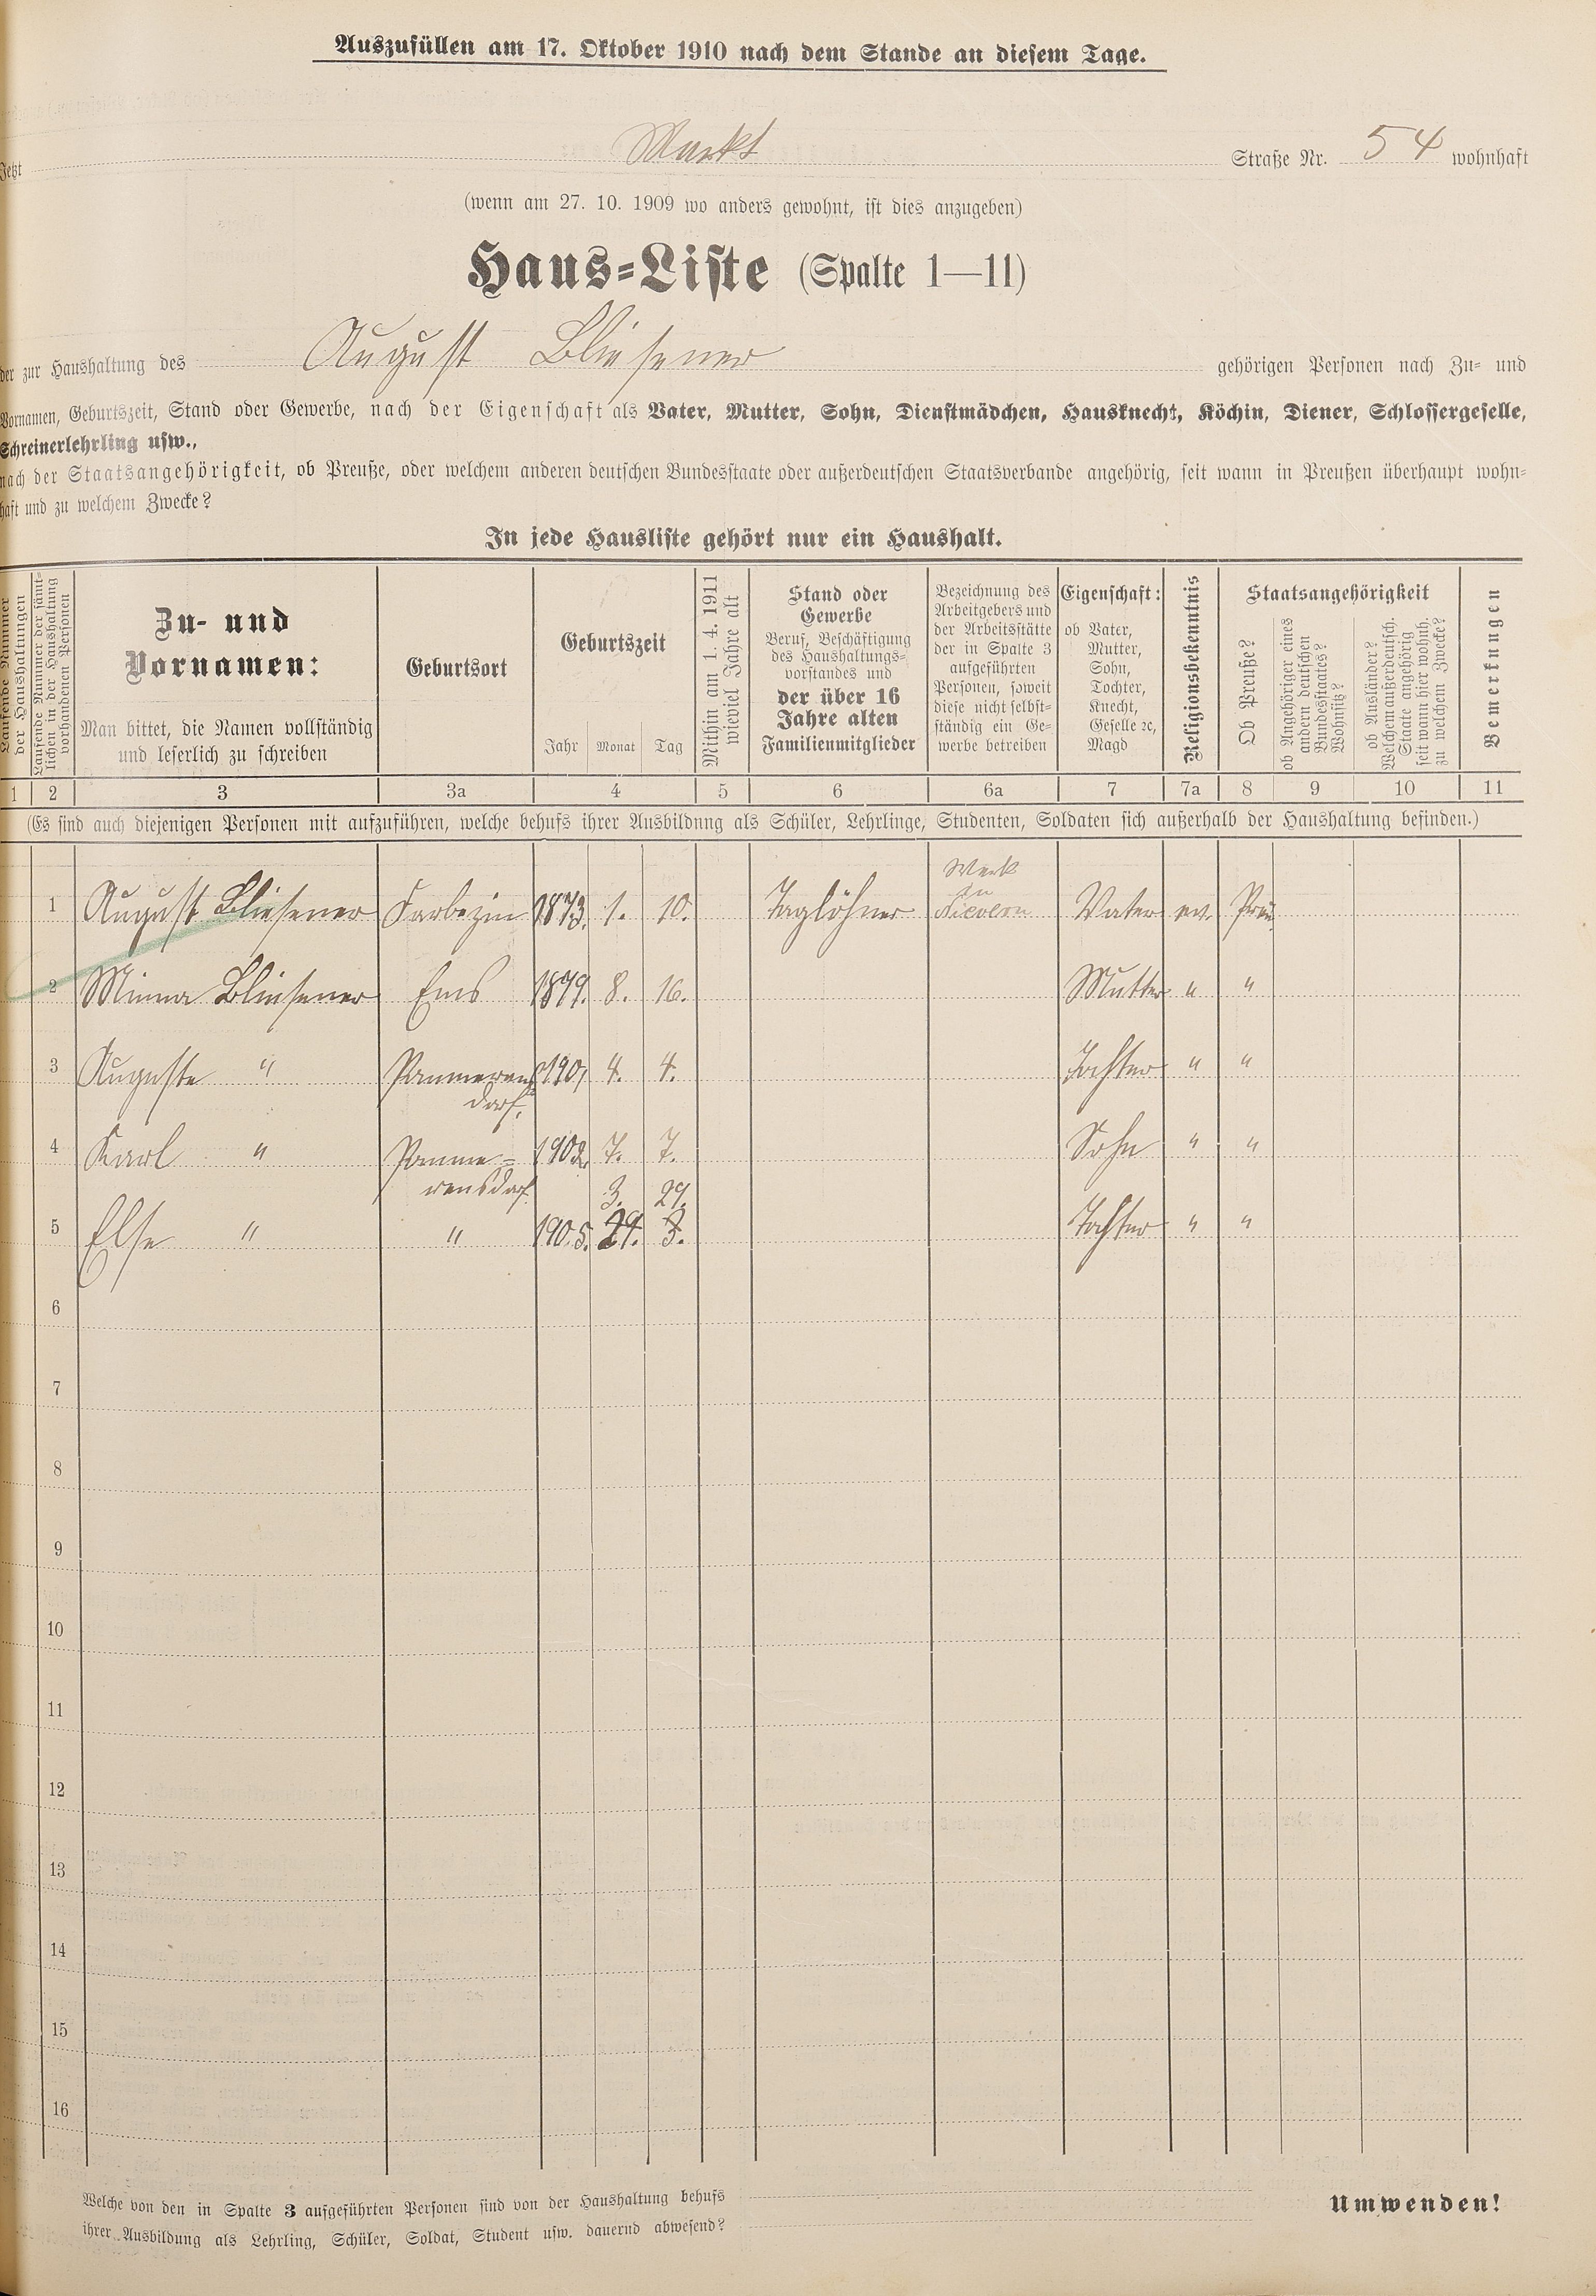 Auszufüllen am 17. Oktober 1910 nach dem Stande an diesem Tage.
Jetzt Markt Straße Nr. 54 wohnhaft
(wenn am 27. 10. 1909 wo anders gewohnt, ist dies anzugeben)
Haus-Liste (Spalte 1—11)
der zur Haushaltung des August Bliesener gehörigen Personen nach Zu- und
Vornamen, Geburtszeit, Stand oder Gewerbe, nach der Eigenschaft als Vater, Mutter, Sohn, Dienstmädchen, Hausknecht, Köchin, Diener, Schlossergeselle,
Schreinerlehrling usw.,
nach der Staatsangehörigkeit, ob Preuße, oder welchem anderen deutschen Bundesstaate oder außerdeutschen Staatsverbande angehörig, seit wann in Preußen überhaupt wohn-
haft und zu welchem Zwecke?
In jede Hausliste gehört nur ein Haushalt.
Laufende Nummer der Haushaltungen
Laufende Nummer der sämt-
lichen in der Haushaltung
vorhandenen Personen
Zu- und
Vornamen:
Man bittet, die Namen vollständig
und leserlich zu schreiben
Geburtsort
Geburtszeit
Jahr Monat Tag
Mithin am 1. 4. 1911
wieviel Jahre alt
Stand oder
Gewerbe
Beruf, Beschäftigung
des Haushaltungs-
vorstandes und
der über 16
Jahre alten
Familienmitglieder
Bezeichnung des
Arbeitgebers und
der Arbeitsstätte
der in Spalte 3
aufgeführten
Personen, soweit
diese nicht selbst-
ständig ein Ge-
werbe betreiben
Eigenschaft:
ob Vater,
Mutter,
Sohn,
Tochter,
Knecht,
Geselle ꝛc,
Magd
Religionsbekenntnis
Staatsangehörigkeit
Ob Preuße?
ob Angehöriger eines
andern deutschen
Bundesstaates?
Wohnsitz?
ob Ausländer?
Welchem außerdeutsch.
Staate angehörig
seit wann hier wohnh.
zu welchem Zwecke?
Bemerkungen
1 2 3 3a 4 5 6 6a 7 7a 8 9 10 11
(Es sind auch diejenigen Personen mit aufzuführen, welche behufs ihrer Ausbildung als Schüler, Lehrlinge, Studenten, Soldaten sich außerhalb der Haushaltung befinden.)
Werk
1 August Bliesener Farbezin 1873. 1. 10. Taglöhner Vater ev. Preu.
2 Minna Bliesener Ems 1879. 8. 16. Mutter " "
3 Auguste " Pommerens 1901 4. 4. Tochter " "
dorf.
4 Karl " Pomme- 1902 7. 7. Sohn " "
rensdorf.
3. 29.
5 Else " " 1905. 29. 3. Tochter " "
6
7
8
9
10
11
12
13
14
15
16
Welche von den in Spalte 3 aufgeführten Personen sind von der Haushaltung behufs
ihrer Ausbildung als Lehrling, Schüler, Soldat, Student usw. dauernd abwesend?
Umwenden!